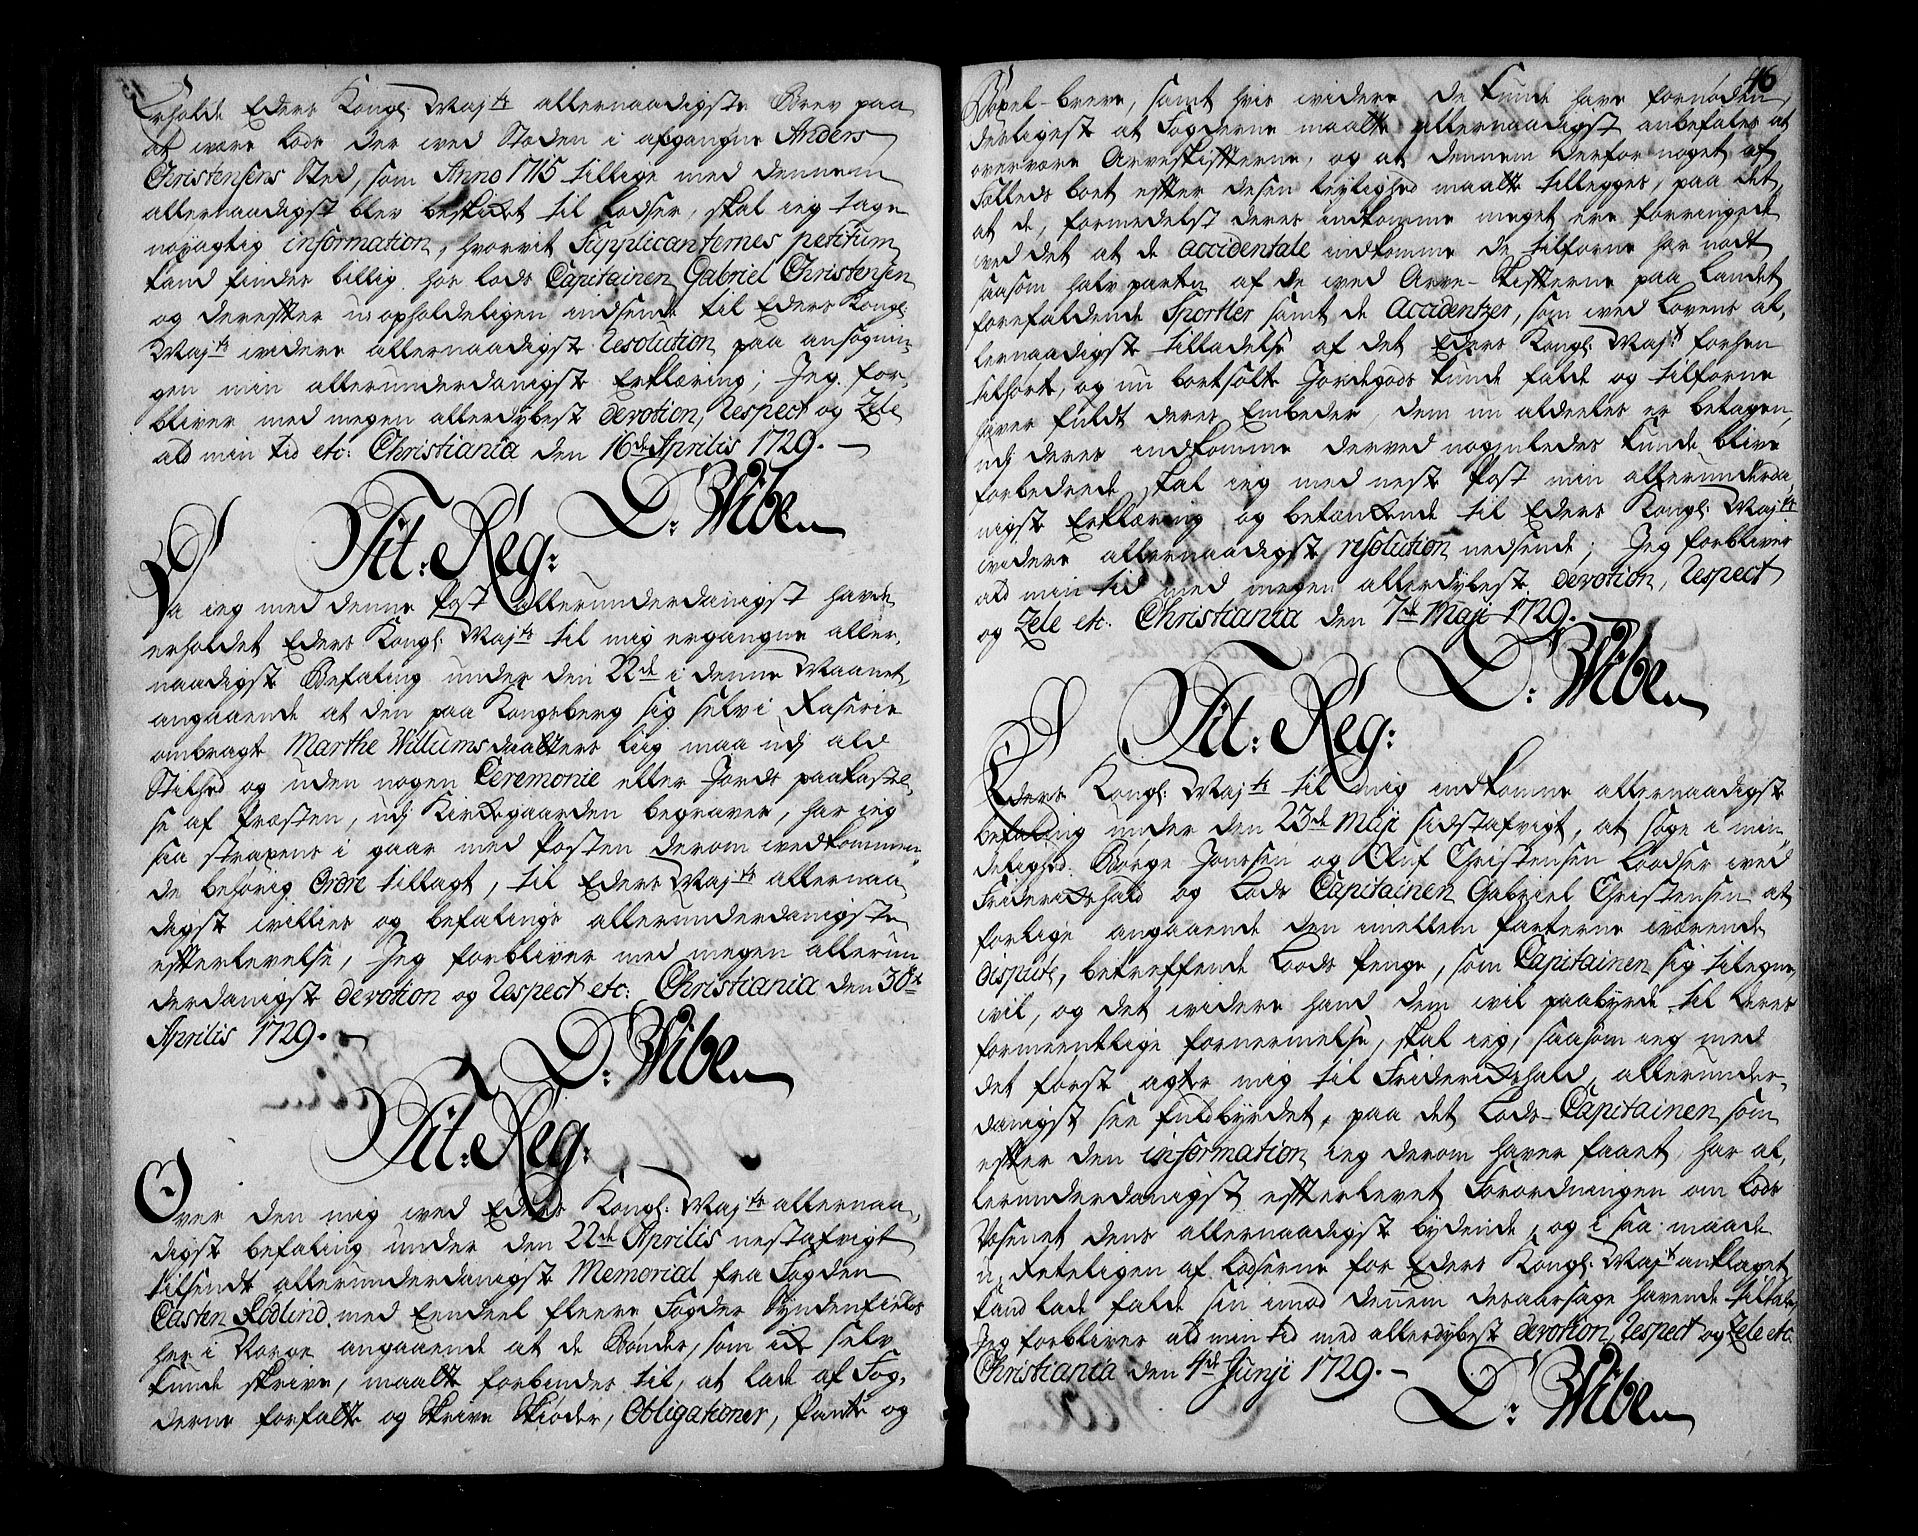 Erholde Eders Kongl: Maj:ts allernaadigste Brev paa
at være Lods der ved Støden i afgangne Anders
Christensens Sted, som Anno 1715 tillige med dennem
allernaadigst blev beskicket til Lodser, skal ieg tage
nøyagtig information, hvorvit Supplicanternes petitum
kand findes billig hos Lods Capitainen Gabriel Christensen
og derefter uopholdeligen indsende til Eders Kongl:
Maj:ts videre allernaadigst Resolution paa ansøgnin-
gen min allerunderdanigst Erklæring; Jeg for-
bliver med megen allerdybest devotion, Respect og Zele
ald min tid etc: Christiania den 16de Aprilis 1729.
D: Wibe
Tit: Reg:
Da ieg med denne Post allerunderdanigst havde
erholdet Eders Kongl: Maj:ts til mig ergangne aller-
naadigst Befaling under den 22de i denne Maanet,
angaaende at den paa Kongsberg sig selv i Raserie
ombragt Marthe Willumsdaatters liig maa udj ald
Stilhed og uden nogen Ceremonie eller Jords paakastel-
se af Præsten, udj Kirkegaarden begraves, har ieg
saa straxens i gaar med Posten derom vedkommen-
de behørig Ordre tillagt, til Eders Maj:ts allernaa-
digst villies og befalings allerunderdanigste
efterlevelse, Jeg forbliver med megen allerun-
derdanigst devotion og Respect etc: Christiania den 30te
Aprilis 1729.
D: Wibe
Tit: Reg:
Over den mig ved Eders Kongl: Maj:ts allernaa-
digst befaling under den 22de Aprilis nestafvigt
tilsendt allerunderdanigst Memorial fra Fogden
Casten Rodlind med Eendeel fleere Fogder Syndenfields
her i Norge angaaende at de Bønder, som ix selv
kunde skrive, maatte forbindes til, at lade af Fog-
derne forfatte og Skrive Skiøder, Obligationer, Pante og
46
Bøxel-breve, samt hvis videre de kunde have fornøden,
deeligest at Fogderne maatte allernaadigst anbefales at
overvære Arveskifterne, og at dennem derfor noget af
Fælleds boet efter desen leylighed maatte tillegges, paa det
at de, formedelst deres indkomme meget ere forringede
ved det at de accidentale indkomme de tilforne har nødt
saasom halv parten af de ved Arve-Skifterne paa Landet
forefaldende Sportler samt de Accidentzer, som ved Lovens al-
lernaadigst tilladelse af det Eders Kongl: Maj:t forhen
tilhørt, og nu bortsolte Jordegods kunde falde og tilforne
haver fuldt deres Embeder, dem nu aldeeles er betagen,
udj deres indkomme derved nogenledes kunde blive
forbedrede skal ieg med nest Post min allerunderda-
nigst Erklæring og betænkende til Eders Kongl: Maj:ts
videre allernaadigst resolution nedsende; Jeg forbliver
ald min tid med megen allerdybest devotion, Respect
og Zele etc: Christiania den 7de Maji 1729.
D: Wibe
Tit: Reg:
Eders Kongl: Maj:ts til mig indkomne allernaadigst
befaling under den 23de Maji sidstafvigt, at søge i min-
delighed Børge Jonsen og Oluf Christensen Loodser ved
Friderichshald og Lods Capitainen Gabriel Christensen at
forlige angaaende den imellem Parterne værende
dispute, betreffende Loods Penge, som Capitainen sig tilegne
vil, og det videre hand dem vil paabyrde til deres
formeentlige fornermelse, skal ieg, saasom ieg med
det først agter mig til Friderichshald, allerunder-
danigst see fuldbyrdet, paa det Lods-Capitainen som
efter den information ieg derom haver faaet, har al-
lerunderdanigst efterlevet Forordningen om Lods
Væsenet dens allernaadigst bydende, og i saa maade
u-retteligen af Lodserne for Eders Kongl: Maj:t anklaget
kand lade falde sin imod dennem deraarsage havende tiltale,
Jeg forbliver ald min tid med allerdybest devotion, Respect og Zele etc:
Christiania den 4de Junji 1729.
D: Wibe